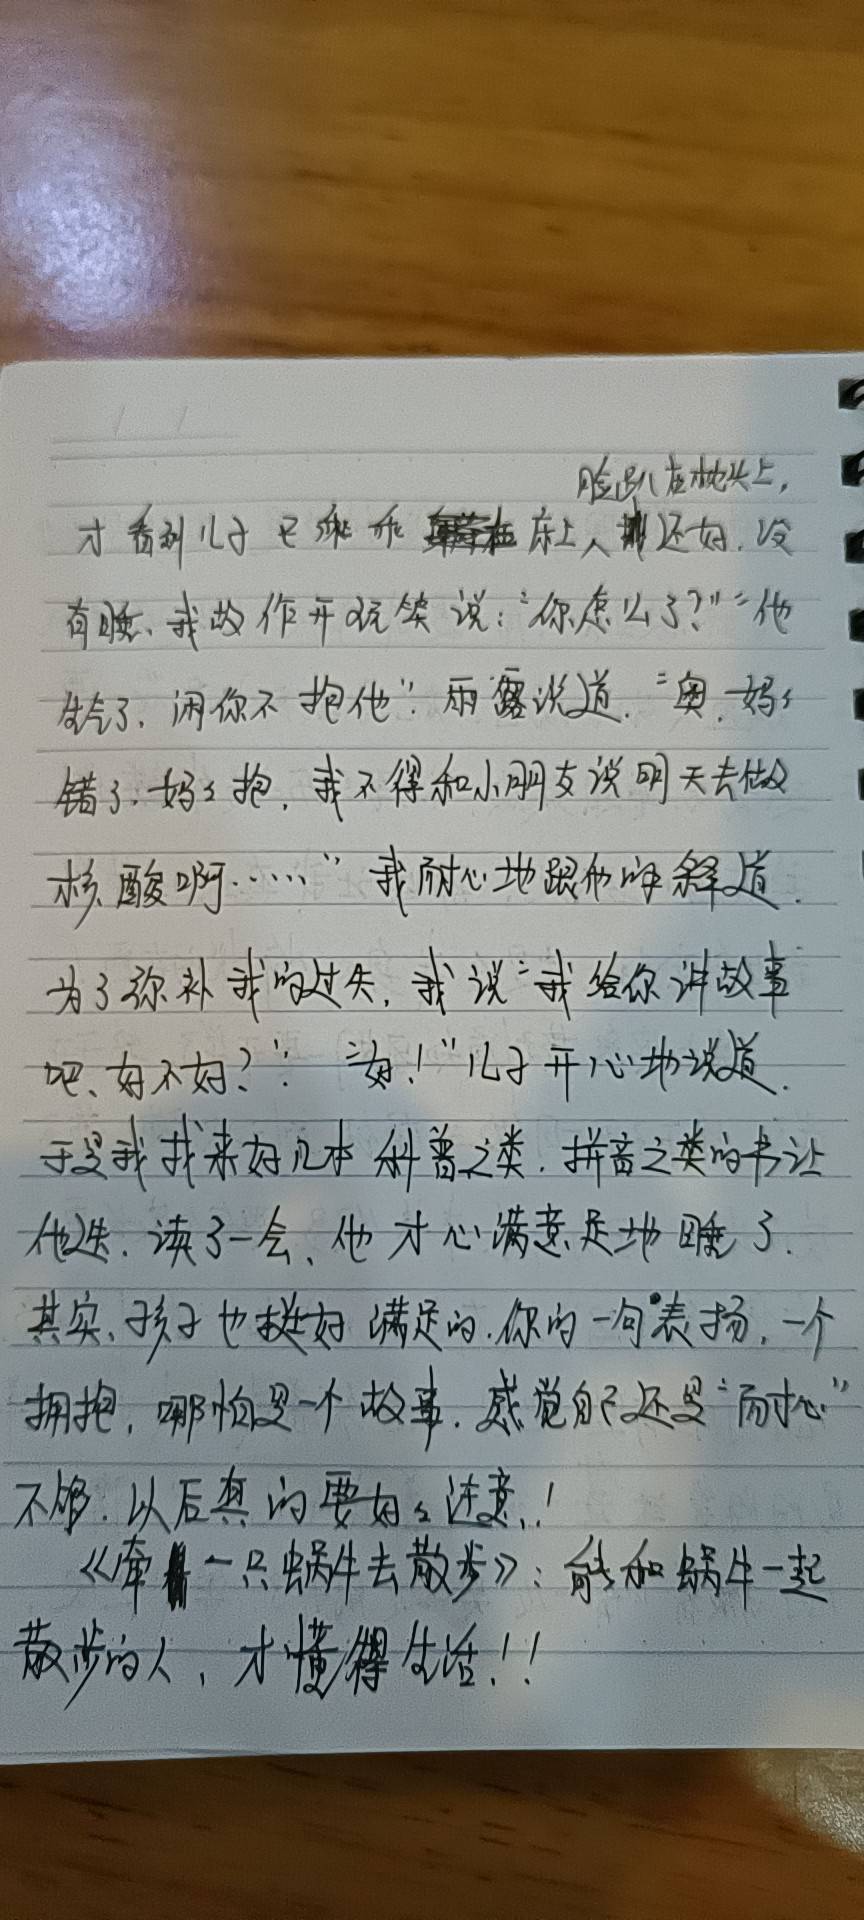 脸趴在枕头上,
才看到儿子已乖乖床上,还好.没
有睡、我故作开玩笑说:“你怎么了?”“他
生气了、闹你不抱他”.雨露说道.“奥.妈々
错了.妈々抱,我不得和小朋友说明天去做
核酸啊……”我耐心地跟他解释道.
为了弥补我的过失,我说“我给你讲故事
吧、好不好?”.“好!”儿子开心地说道.
于是我找来好几本科普之类.拼音之类的书让
他选.读了一会、他才心满意足地睡了.
其实、孩子也挺好满足的.你的一句表扬,一个
拥抱,哪怕是一个故事.感觉自己还是“耐心”
不够.以后真的要好々注意!
《牵一只蜗牛去散步》:能和蜗牛一起
散步的人,才懂得生活!!